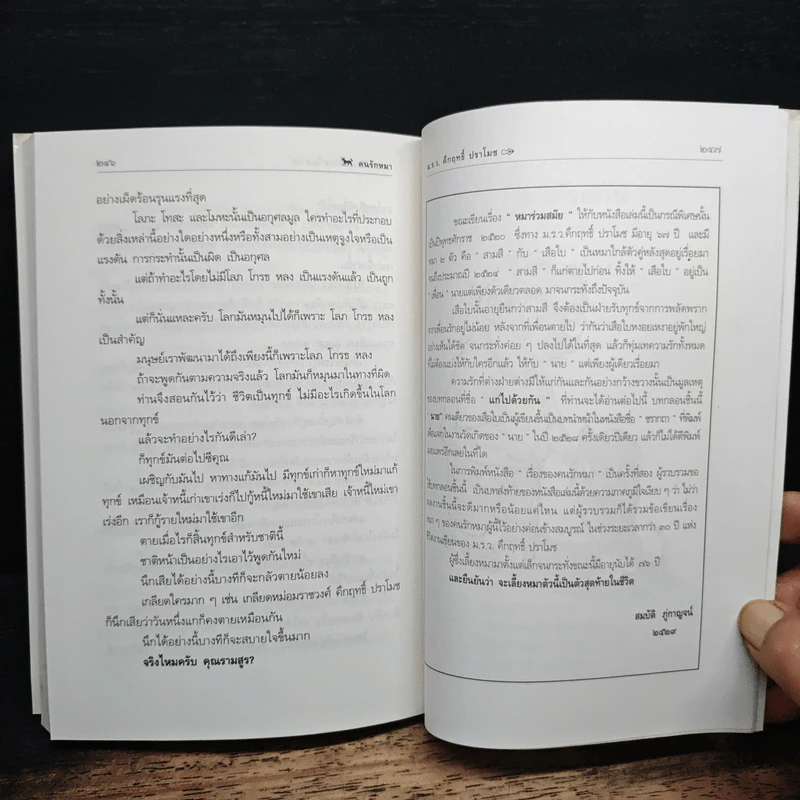 ๒๔๖ คนรักหมา
อย่างเผ็ดร้อนรุนแรงที่สุด
โลภะ โทสะ และโมหะนั้นเป็นอกุศลมูล ใครทำอะไรที่ประกอบ
ด้วยสิ่งเหล่านี้อย่างใดอย่างหนึ่งหรือทั้งสามอย่างเป็นเหตุจูงใจหรือเป็น
แรงดัน การกระทำนั้นเป็นผิด เป็นอกุศล
แต่ถ้าทำอะไรโดยไม่มีโลภ โกรธ หลง เป็นแรงดันแล้ว เป็นถูก
ทั้งนั้น
แต่ก็นั่นแหละครับ โลกมันหมุนไปได้ก็เพราะ โลภ โกรธ หลง
เป็นสำคัญ
มนุษย์เราพัฒนามาได้ถึงเพียงนี้ก็เพราะโลภ โกรธ หลง
ถ้าจะพูดกันตามความจริงแล้ว โลกมันก็หมุนมาในทางที่ผิด
ท่านจึงสอนกันไว้ว่า ชีวิตเป็นทุกข์ ไม่มีอะไรเกิดขึ้นในโลก
นอกจากทุกข์
แล้วจะทำอย่างไรกันดีเล่า?
ก็ทุกข์มันต่อไปซีคุณ
เผชิญกับมันไป หาทางแก้มันไป มีทุกข์เก่าก็หาทุกข์ใหม่มาแก้
ทุกข์ เหมือนเจ้าหนี้เก่าเขาเร่งก็ไปกู้หนี้ใหม่มาใช้เขาเสีย เจ้าหนี้ใหม่เขา
เร่งอีก เราก็กู้รายใหม่มาใช้เขาอีก
ตายเมื่อไรก็สิ้นทุกข์สำหรับชาตินี้
ชาติหน้าเป็นอย่างไรเอาไว้พูดกันใหม่
นึกเสียได้อย่างนี้บางทีก็จะกลัวตายน้อยลง
เกลียดใครมาก ๆ เช่น เกลียดหม่อมราชวงศ์ คึกฤทธิ์ ปราโมช
ก็นึกเสียว่าวันหนึ่งแกก็คงตายเหมือนกัน
นึกได้อย่างนี้บางทีก็จะสบายใจขึ้นมาก
จริงไหมครับ คุณรามสูร?
ม.ร.ว. คึกฤทธิ์ ปราโมช ๒๔๗
ขณะเขียนเรื่อง " หมาร่วมสมัย " ให้กับหนังสือเล่มนี้เป็นกรณีพิเศษนั้น
เป็นปีพุทธศักราช ๒๕๒๐ ซึ่งทาง ม.ร.ว.คึกฤทธิ์ ปราโมช มีอายุ ๖๗ ปี และมี
หมา ๒ ตัว คือ " สามสี " กับ " เสือใบ " เป็นหมาใกล้ตัวคู่หลังสุดอยู่เรื่อยมา
จนถึงประมาณปี ๒๕๒๔ " สามสี " ก็แก่ตายไปก่อน ทิ้งให้ " เสือใบ " อยู่เป็น
" เพื่อน " นายแต่เพียงตัวเดียวตลอด มาจนกระทั่งถึงปัจจุบัน
เสือใบนั้นอายุยืนกว่าสามสี จึงต้องเป็นฝ่ายรับทุกข์จากการพลัดพราก
จากเพื่อนรักอยู่ไม่น้อย หลังจากที่เพื่อนตายไป ว่ากันว่าเสือใบหงอยเหงาอยู่พักใหญ่
อย่างเห็นได้ชัด จนกระทั่งค่อย ๆ ปลงไปได้ในที่สุด แล้วก็ทุ่มเทความรักทั้งหมด
ที่ไม่ต้องแบ่งให้กับใครอีกแล้ว ให้กับ " นาย " แต่เพียงผู้เดียวเรื่อยมา
ความรักที่ต่างฝ่ายต่างมีให้แก่กันและกันอย่างกว้างขวางนั้นเป็นมูลเหตุ
ของบทกลอนที่ชื่อ " แก่ไปด้วยกัน " ที่ท่านจะได้อ่านต่อไปนี้ บทกลอนชิ้นนี้
" นาย " คนเดียวของเสือใบเป็นผู้เขียนขึ้นเป็นบทนำหน้าในหนังสือชื่อ " ชรากถา " ที่พิมพ์
เพื่อแจกในงานวันเกิดของ " นาย " ในปี ๒๕๒๘ ครั้งเดียวปีเดียว แล้วก็ไม่ได้ตีพิมพ์
เผยแพร่อีกเลยในที่ใด
ในการพิมพ์หนังสือ " เรื่องของคนรักหมา " เป็นครั้งที่สอง ผู้รวบรวมขอ
ใช้บทกลอนชิ้นนี้ เป็นบทส่งท้ายของหนังสือเล่มนี้ด้วยความภาคภูมิใจเงียบ ๆ ว่า ไม่ว่า
ผลงานชิ้นนี้จะดีมากหรือน้อยแค่ไหน แต่ผู้รวบรวมก็ได้รวมข้อเขียนเรื่อง
หมา ๆ ของคนรักหมาผู้นี้ไว้อย่างค่อนข้างสมบูรณ์ ในช่วงระยะเวลากว่า ๓๐ ปี แห่ง
ชีวิตงานเขียนของ ม.ร.ว. คึกฤทธิ์ ปราโมช
ผู้ซึ่งเลี้ยงหมามาตั้งแต่เล็กจนกระทั่งขณะนี้มีอายุนับได้ ๗๖ ปี
และยืนยันว่า จะเลี้ยงหมาตัวนี้เป็นตัวสุดท้ายในชีวิต
สมบัติ ภู่กาญจน์
๒๕๒๙